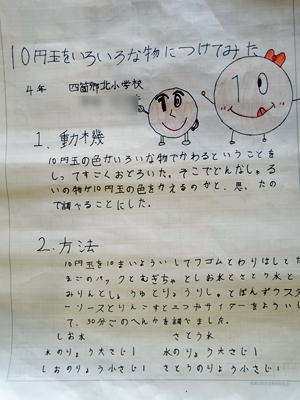 10円玉をいろいろな物につけてみた
4年 四箇郷北小学校
1
1. 動機
10円玉の色がいろいな物でかわるということを
しってすごくおどろいた。そこでどんなしゅる
いの物が10円玉の色をかえるのかと、思ったの
で調べることにした。
2. 方法
10円玉を10まいよういしてワゴムとわりはしとた
まごのパックとむぎちゃとしお水とさとう水と
みりんとしょうゆとりょうりしゅとぽんずウスタ
ーソースとりんごすとエつやサイダーをよういし
て、30分ごのへんかを調べました。
しお水 さとう水
水のりょう大さじ1 水のりょう大さじ1
しおのりょう小さじ1 さとうのりょう小さじ1